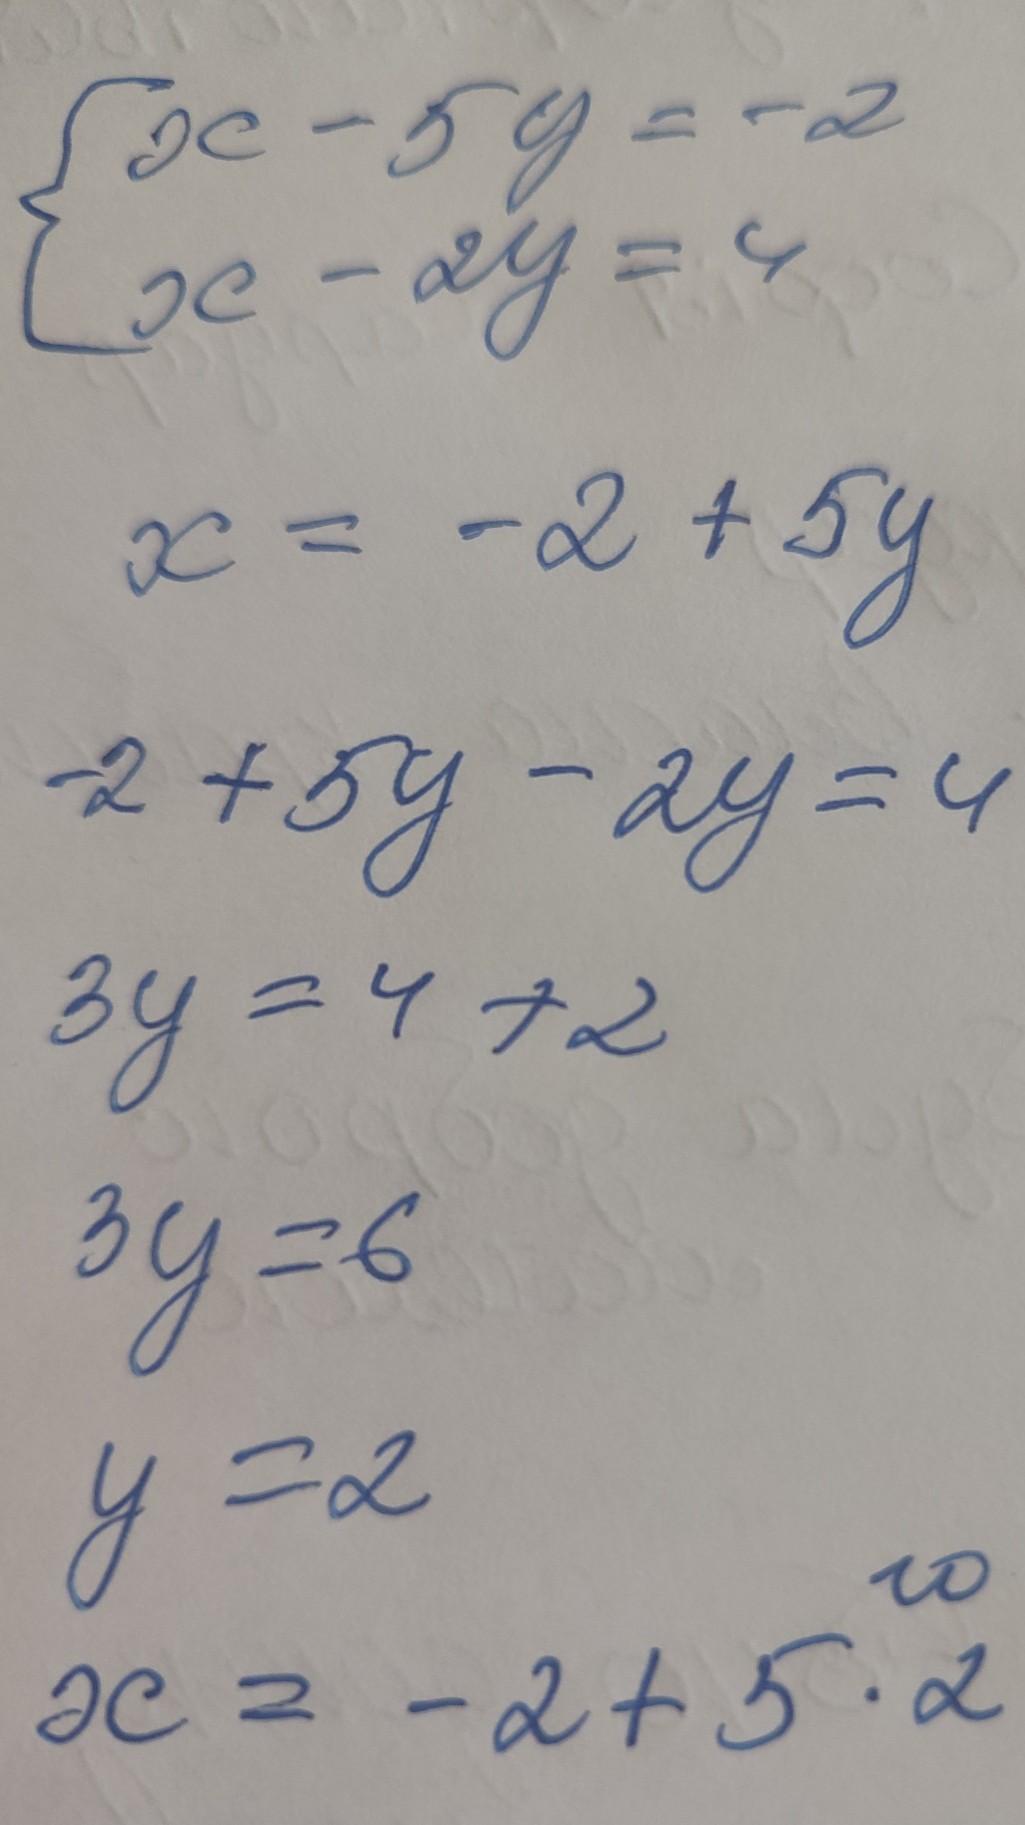 x - 5y = -2
x - 2y = 4
x = -2 + 5y
-2 + 5y - 2y = 4
3y = 4 + 2
3y = 6
y = 2
10
x = -2 + 5 · 2